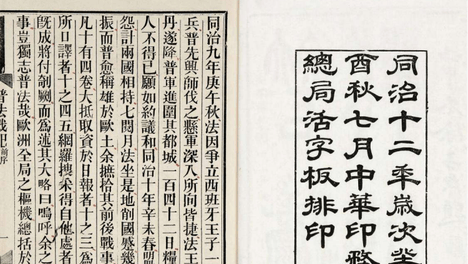 同治十二年歲次癸
酉秋七月中華印務
總局活字板排印
同治九年庚午秋法因爭立西班牙王子一
兵普先興師伐之懸軍深入所向皆捷法王
丹遂降普軍進圍其都城一百四十二日糧
人不得已願如約議和同治十年辛未春盟
怨計兩國相持七閱月法坐是地削國蹙幾
振而普愈稱雄於歐土余摭拾其前後戰事
凡十有四卷大抵取資於日報者十之三為
所口譯者十之四五網羅搜采得自他處者
既成將付剞劂而為述其大略曰嗚呼余之
事豈獨志普法哉歐洲全局之樞機總括於
普法戰紀 前序